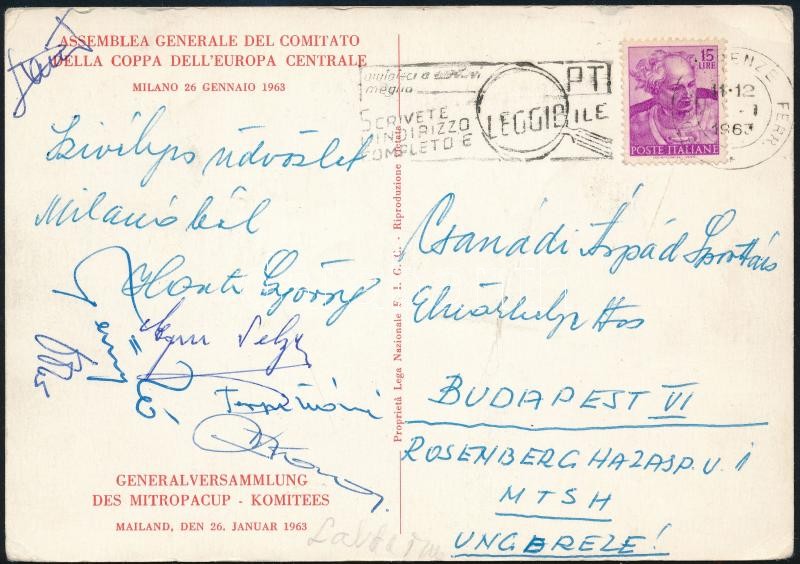 ASSEMBLEA GENERALE DEL COMITATO
DELLA COPPA DELL'EUROPA CENTRALE
MILANO 26 GENNAIO 1963
Szivélyes üdvözlet
Milanóból
Honti György
GENERALVERSAMMLUNG
DES MITROPACUP - KOMITEES
MAILAND, DEN 26. JANUAR 1963
Proprietà Lega Nazionale F. I. G. C. - Riproduzione vietata
meglio
SCRIVETE
INDIRIZZO
COMPLETO E
LEGGIBILE
PT
15
LIRE
POSTE ITALIANE
11-12
1963
FERR.
Csanádi Árpád Sporttárs
Elnökhelyettes
BUDAPEST VI
ROSENBERG HÁZASP. U. 1
MTSH
UNGEREZE!